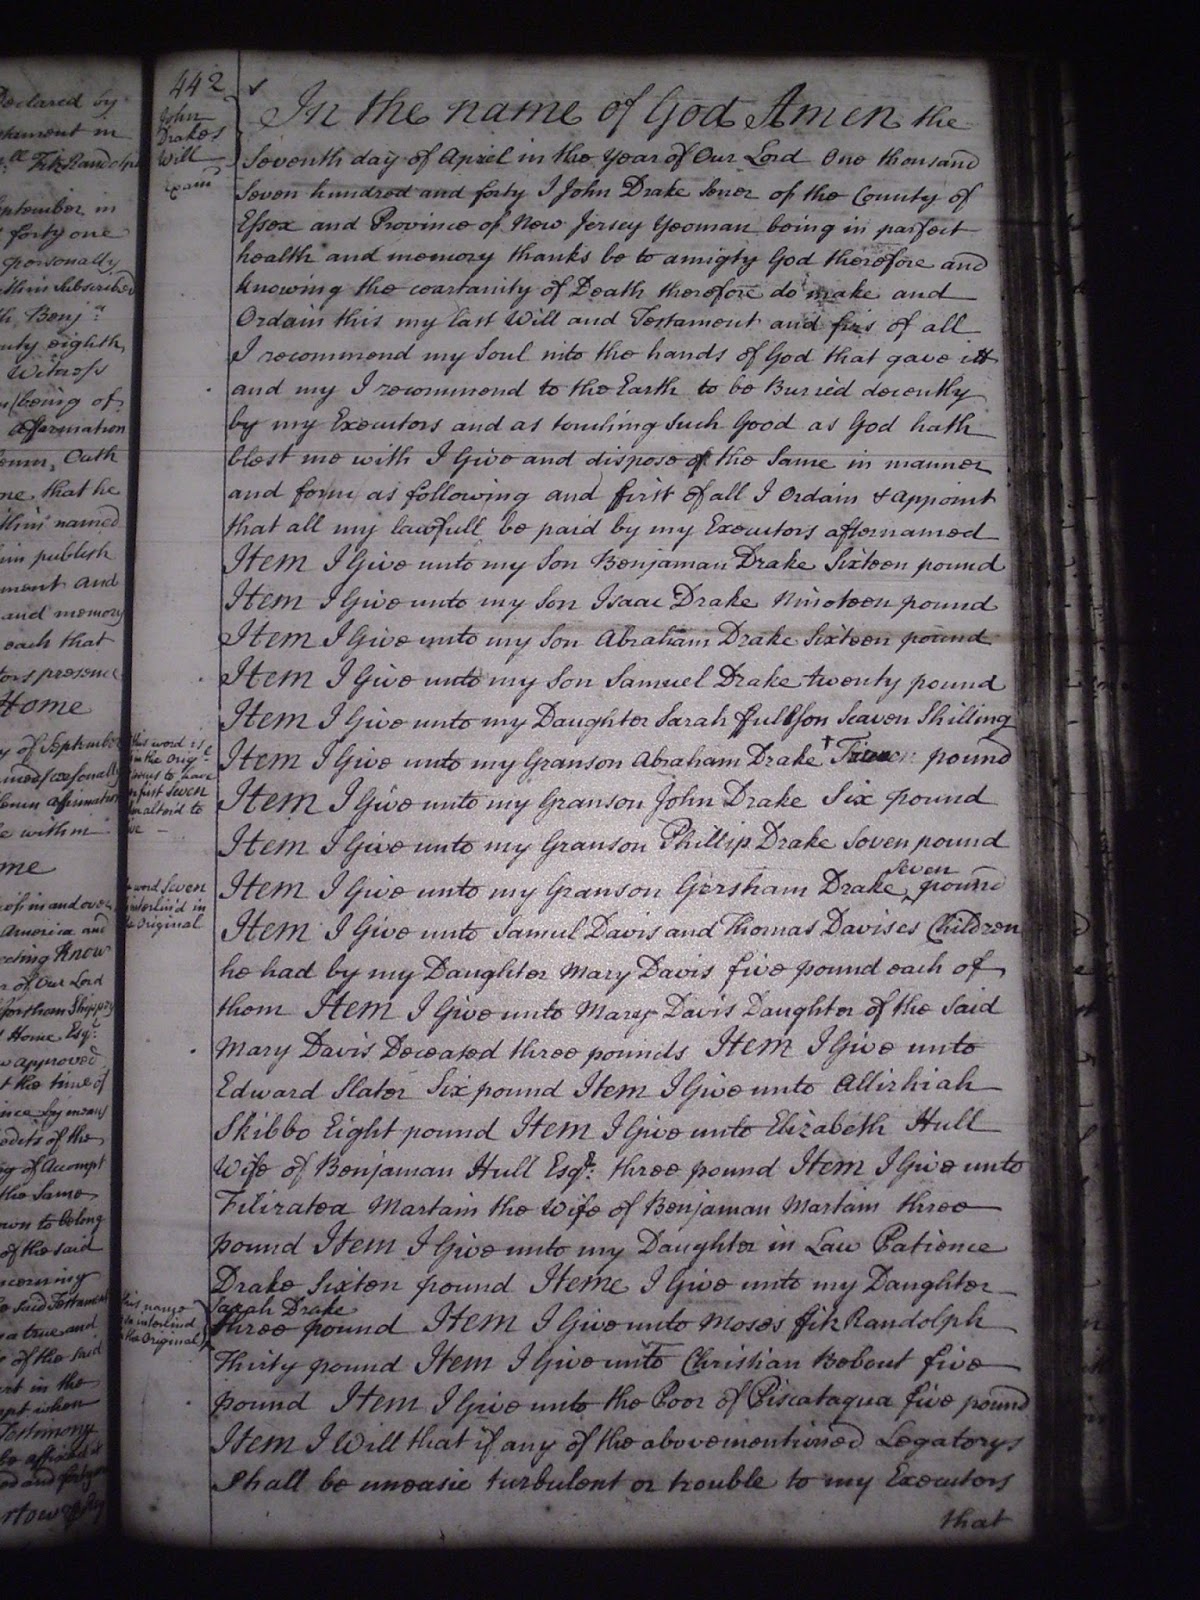 Declared by
in
FitzRandolph
September in
forty one
personally
within Subscribed
Benj.n
eighth
Witness
being of
affirmation
Oath
me that he
named
publish
and
and memory
each that
presence
Home
of September
affirmation
within
me
America and
Know
of Our Lord
Home Esq.r
approved
the time of
of the
of Accompt
the Same
to belong
of the said
Said Testament
a true and
of the said
in the
when
Testimony
442
John
Drakes
Will
Exam.d
this word is
in the Orig.l
seems to have
first Seven
alter'd to
word Seven
interlin'd in
Original
this name
interlined
the Original
In the name of God Amen the
Seventh day of Apriel in the Year of Our Lord One thousand
Seven hundred and forty I John Drake Sener of the County of
Essex and Province of New Jersey Yeoman being in parfect
health and memory thanks be to amigty God therefore and
knowing the coartanity of Death therefore do make and
Ordain this my last Will and Testament and firs of all
I recommend my Soul into the hands of God that gave itt
and my I recommend to the Earth to be Burried decently
by my Executors and as touching Such Good as God hath
blest me with I Give and dispose of the Same in manner
and form as following and first of all I Ordain & appoint
that all my lawfull be paid by my Executors afternamed
Item I Give unto my Son Benjaman Drake Sixteen pound
Item I Give unto my Son Isaac Drake Nineteen pound
Item I Give unto my Son Abraham Drake Sixteen pound
Item I Give unto my Son Samuel Drake twenty pound
Item I Give unto my Daughter Sarah ffullson Seaven Shilling
Item I Give unto my Granson Abraham Drake † pound
Item I Give unto my Granson John Drake Six pound
Item I Give unto my Granson Phillip Drake Seven pound
Item I Give unto my Granson Gersham Drake Seven pound
Item I Give unto Samul Davis and Thomas Davises Children
he had by my Daughter Mary Davis five pound each of
them Item I Give unto Mary Davis Daughter of the Said
Mary Davis Deceated three pounds Item I Give unto
Edward Slater Six pound Item I Give unto Allirhiah
Skibbo Eight pound Item I Give unto Elizabeth Hull
Wife of Benjaman Hull Esq.r three pound Item I Give unto
Filiratea Martain the Wife of Benjaman Martain three
pound Item I Give unto my Daughter in Law Patience
Drake Sixten pound Iteme I Give unto my Daughter
Sarah Drake
three pound Item I Give unto Moses ffitz Randolph
Thirty pound Item I Give unto Christian Bebout five
pound Item I Give unto the Poor of Piscataqua five pound
Item I Will that if any of the abovementioned Legatorys
Shall be uneasie turbulent or trouble to my Executors
that